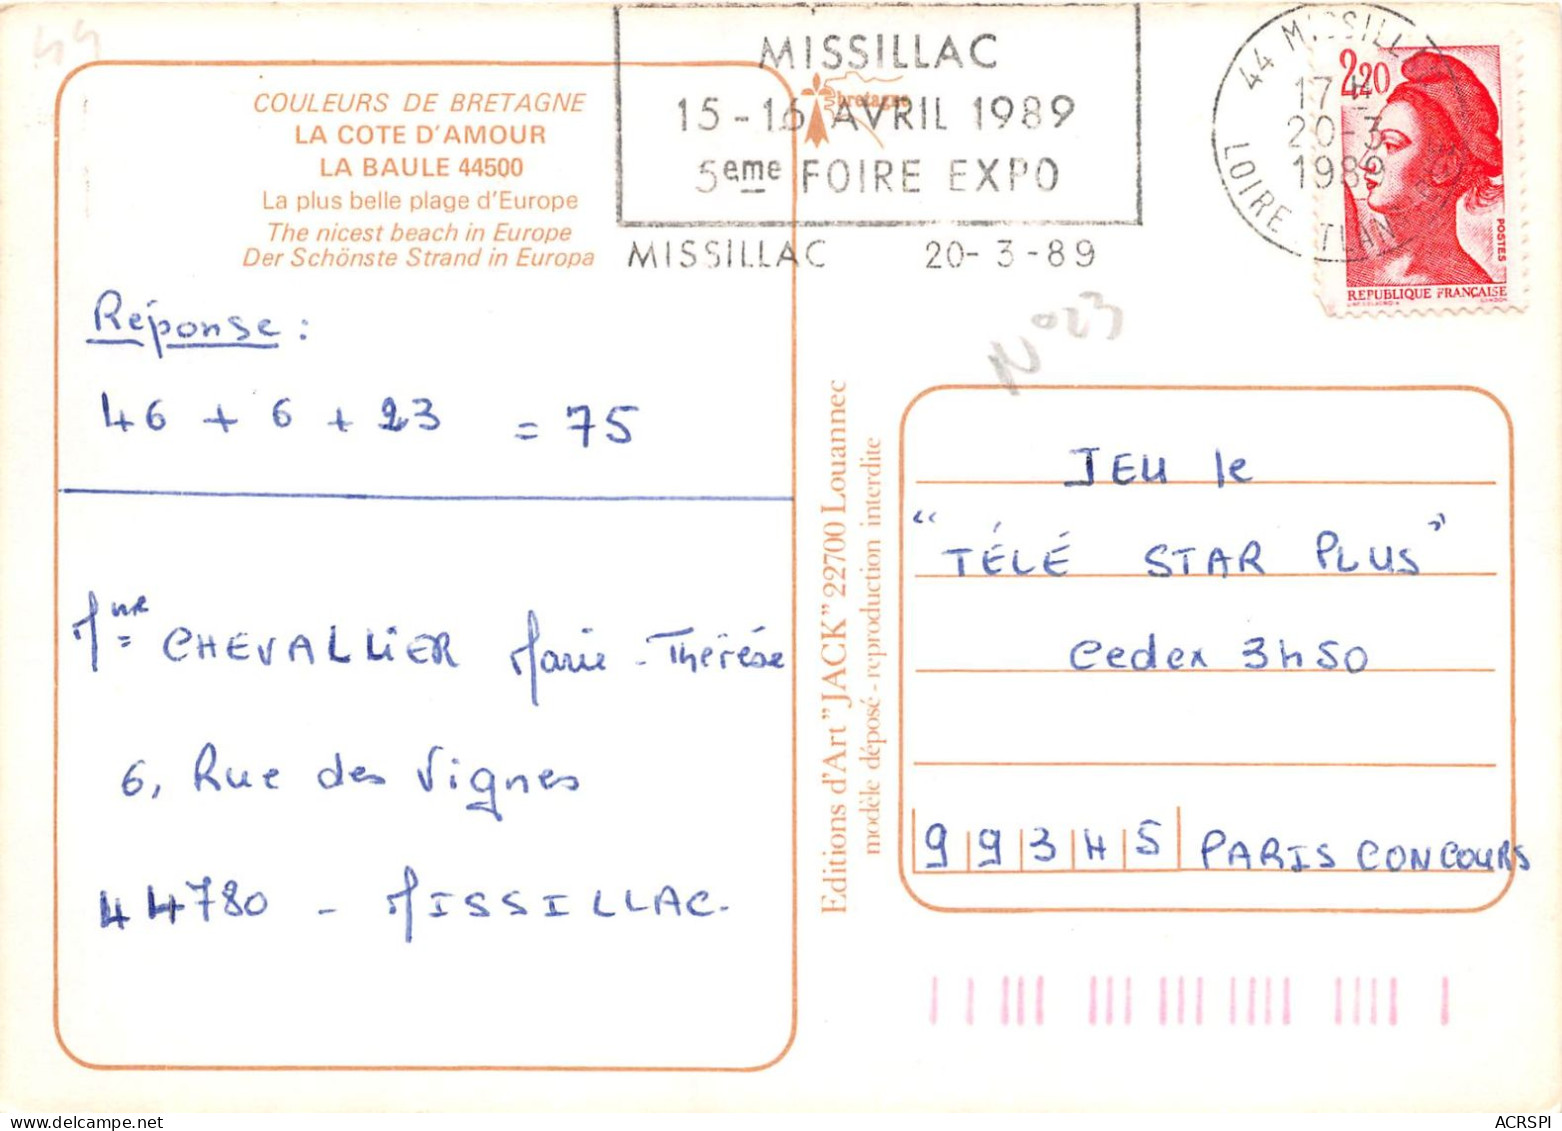 44
COULEURS DE BRETAGNE
LA COTE D'AMOUR
LA BAULE 44500
La plus belle plage d'Europe
The nicest beach in Europe
Der Schönste Strand in Europa
bretagne
MISSILLAC
15-16 AVRIL 1989
5eme FOIRE EXPO
MISSILLAC 20-3-89
44 MISSILLAC
17H
20-3
1989
LOIRE ATLANTIQUE
2,20
POSTES
REPUBLIQUE FRANÇAISE
N°23
Réponse :
46 + 6 + 23 = 75
Mme CHEVALLIER Marie-Thérèse
6, Rue des Vignes
44780 - MISSILLAC.
Editions d'Art "JACK" 22700 Louannec
modèle déposé - reproduction interdite
JEU le
"TÉLÉ STAR PLUS"
Cedex 3450
99345 PARIS CONCOURS
ACRSPI